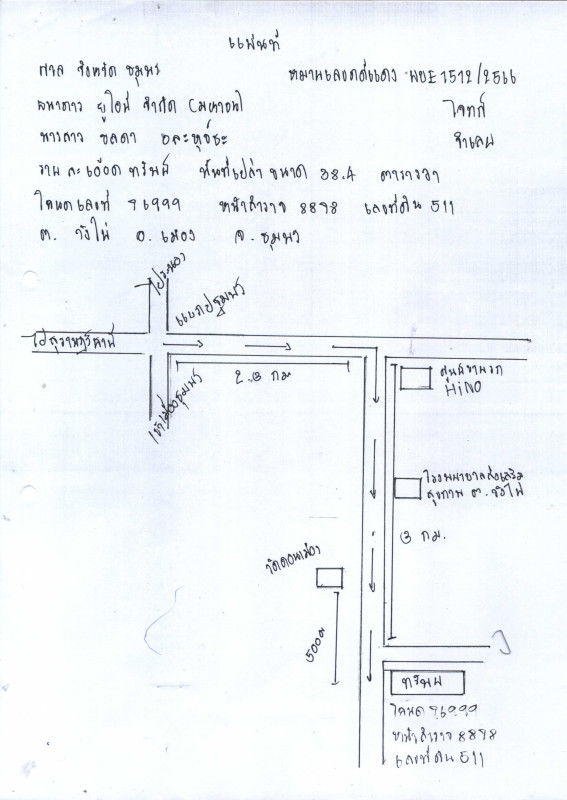 แผนที่
ศาล จังหวัด ชุมพร หมายเลขคดีแดง ผบE1512/2566
ธนาคาร ยูโอบี จำกัด (มหาชน) โจทก์
นางสาว ชลดา จำเลย
รายละเอียด ทรัพย์ พื้นที่เปล่า ขนาด 38.4 ตารางวา
โฉนดเลขที่ 76999 หน้าสำรวจ 8898 เลขที่ดิน 511
ต. วังไผ่ อ. เมือง จ. ชุมพร
ไประนอง
แยกปฐมพร
ไปสุราษฎร์ธานี
เข้าเมืองชุมพร
2.3 กม
HINO
โรงพยาบาลส่งเสริม
สุขภาพ ต. วังไผ่
3 กม.
วัดดอนเมือง
500ม
ทรัพย์
โฉนด 76999
หน้าสำรวจ 8898
เลขที่ดิน 511